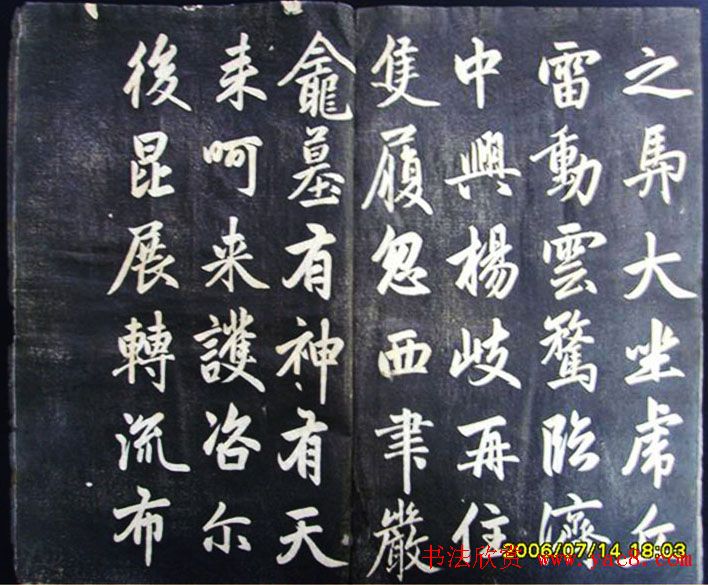 之馬大坐虎丘
雷動雲騖臨濟
中興楊岐再住
隻履忽西聿嚴
龕墓有神有天
来呵来護咨尔
後昆展轉流布
2006/07/14 18:03
书法欣赏 www.yac8.com